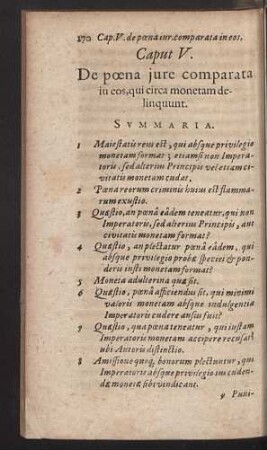 170 Cap. V. de pœna iur. comparata in eos,
Caput V.
De pœna jure comparata
in eos, qui circa monetam de-
linquunt.
SVMMARIA.
1 Maiestatis reus est, qui absque privilegio
monetam format; etiamsi non Imperat-
oris, sed alterius Principis vel etiam ci-
vitatis monetam cudat.
2 Pœna reorum criminis huius est flamma-
rum exustio.
3 Quæstio, an pœnâ eâdem teneatur, qui non
Imperatoris, sed alterius Principis, aut
civitatis monetam format?
4 Quæstio, an plectatur pœnâ eâdem, qui
absque privilegio probæ speciei & pon-
deris iusti monetam format?
5 Moneta adulterina quæ sit.
6 Quæstio, pœnâ afficiendus sit, qui minimi
valoris monetam absque indulgentia
Imperatoris cudere ausus fuit?
7 Quæstio, qua pœna teneatur, qui iustam
Imperatoris monetam accipere recusat?
ubi Autoris distinctio.
8 Amissione quoq; bonorum plectuntur, qui
Imperatoris absque privilegio ius cuden-
dæ monetæ sibi vindicant.
9 Puni-